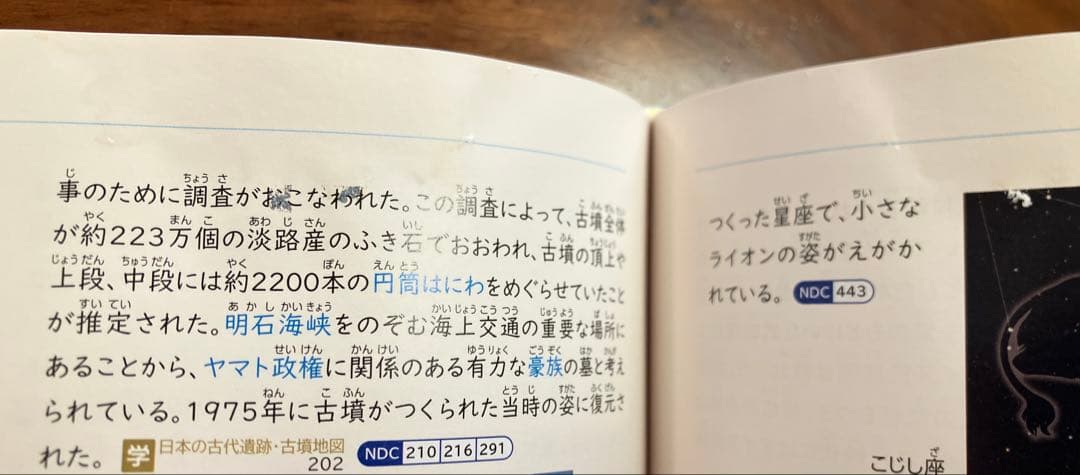 事のために調査がおこなわれた。この調査によって、古墳全体
が約223万個の淡路産のふき石でおおわれ、古墳の頂上や
上段、中段には約2200本の円筒はにわをめぐらせていたこと
が推定された。明石海峡をのぞむ海上交通の重要な場所に
あることから、ヤマト政権に関係のある有力な豪族の墓と考え
られている。1975年に古墳がつくられた当時の姿に復元さ
れた。 学 日本の古代遺跡・古墳地図 202 NDC 210 216 291
つくった星座で、小さな
ライオンの姿がえがか
れている。 NDC 443
こじし座